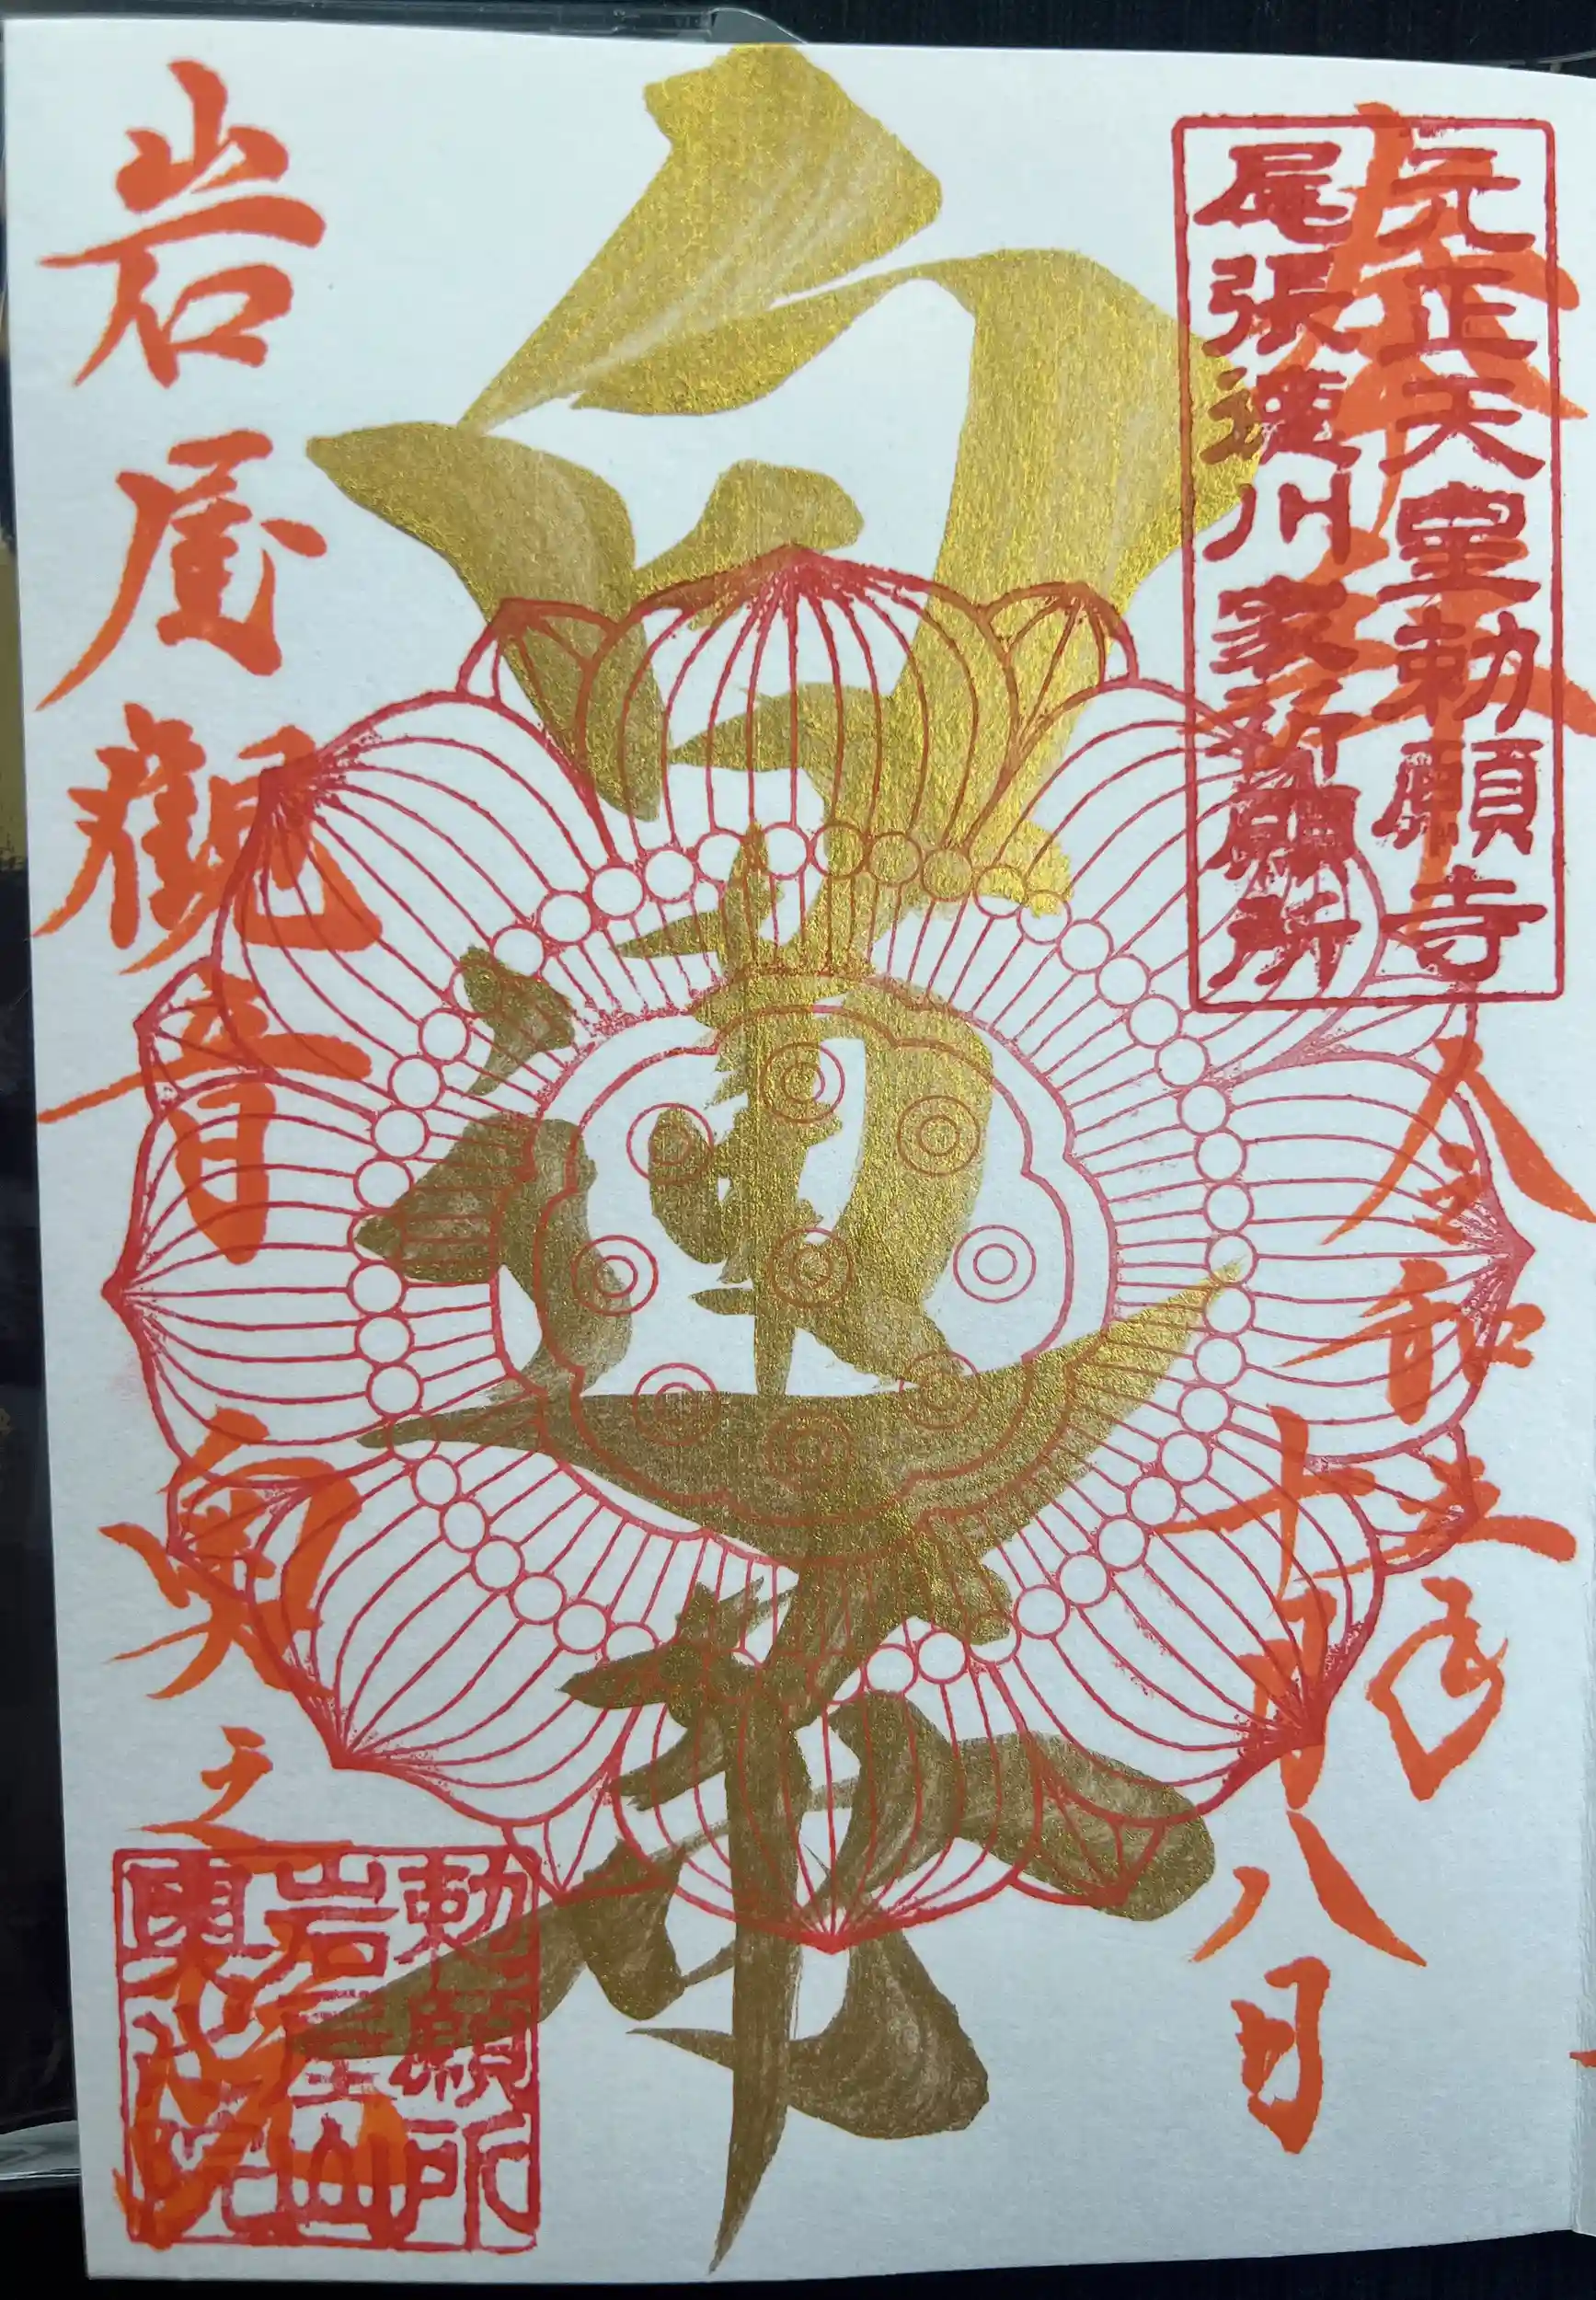 奉拝
令和五年
十月八日
元正天皇勅願寺
尾張徳川家祈願所
岩屋觀音 奥之院
勅願所
岩屋山
奥之院